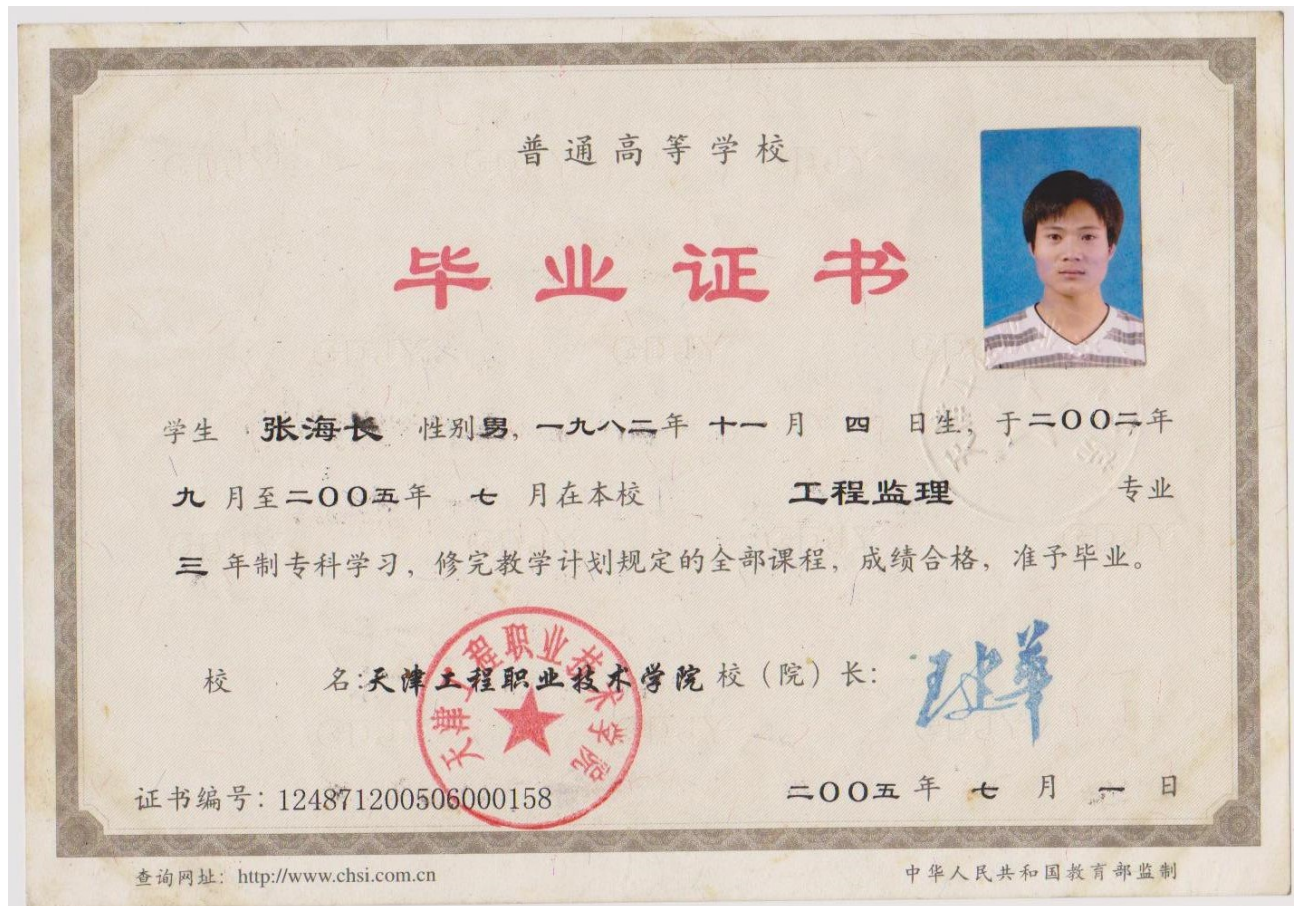 普通高等学校
毕业证书
学生 张海长 性别男，一九八二年 十一 月 四 日生，于二〇〇二年
九 月至二〇〇五年 七 月在本校 工程监理 专业
三 年制专科学习，修完教学计划规定的全部课程，成绩合格，准予毕业。
校 名：天津工程职业技术学院 校（院）长：
天津工程职业技术学院
证书编号：124871200506000158
二〇〇五 年 七 月 一 日
查询网址：http://www.chsi.com.cn
中华人民共和国教育部监制